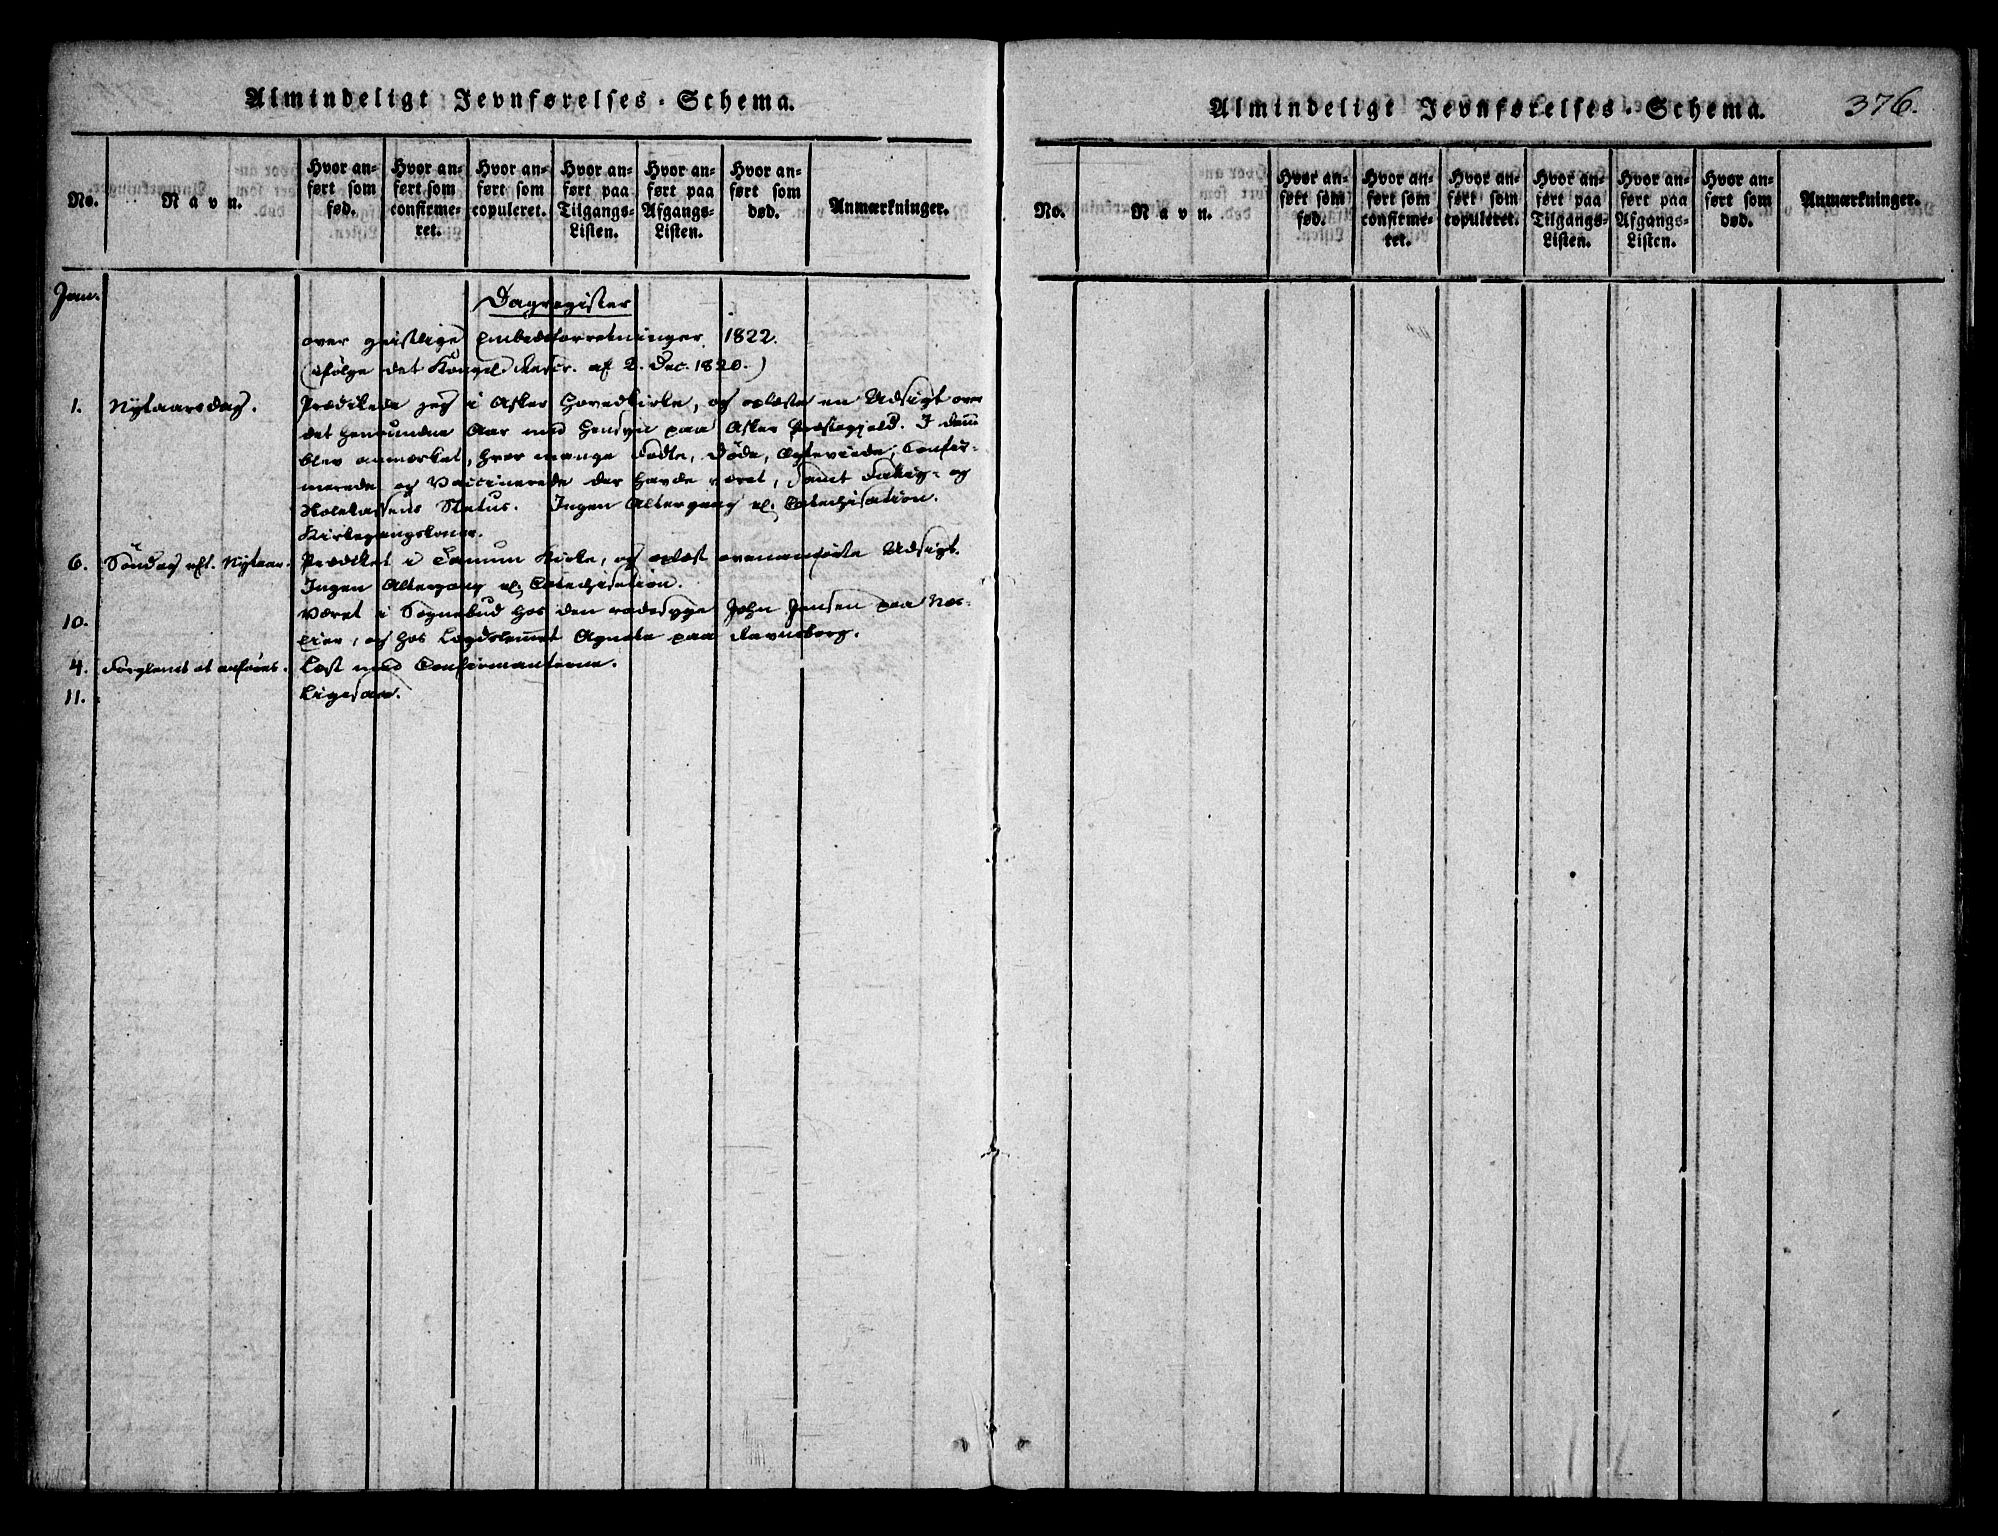 Almindeligt Jevnførelses-Schema.
No. Navn. Hvor anført som fød. Hvor anført som confirmeret. Hvor anført som copuleret. Hvor anført paa Tilgangs-Listen. Hvor anført paa Afgangs-Listen. Hvor anført som død. Anmærkninger.
Jan.
Dagregister
over geistlige Embedsforretninger 1822.
(ifølge det Kongel. Rescr. af 2. Dec. 1820.)
1. Nytaarsdag. Prædikede jeg i Asker Hovedkirke, og oplæste en Udsigt over
det henrundne Aar med Hensyn paa Asker Præstegjeld. I dem
blev anmerket, hvor mange Fødte, Døde, Egteviede, Confir-
merede og Vaccinerede der havde været, samt Fattig- og
Skolekassens Status. Ingen Altergang el. Catechisation.
Kirkegangskoner.
6. Søndag eft. Nytaar. Prædiket i Tanum Kirke, og oplæst ovenanførte Udsigt.
Ingen Altergang el. Catechisation.
10. Været i Sognebud hos den radesyge John Jensen paa
og hos Lægdslemmet Agnete paa Ravnsborg.
4. Forglemt at anføres. Læst med Confirmanterne.
11. Ligesaa.
Almindeligt Jevnførelses-Schema. 376.
No. Navn. Hvor anført som fød. Hvor anført som confirmeret. Hvor anført som copuleret. Hvor anført paa Tilgangs-Listen. Hvor anført paa Afgangs-Listen. Hvor anført som død. Anmærkninger.